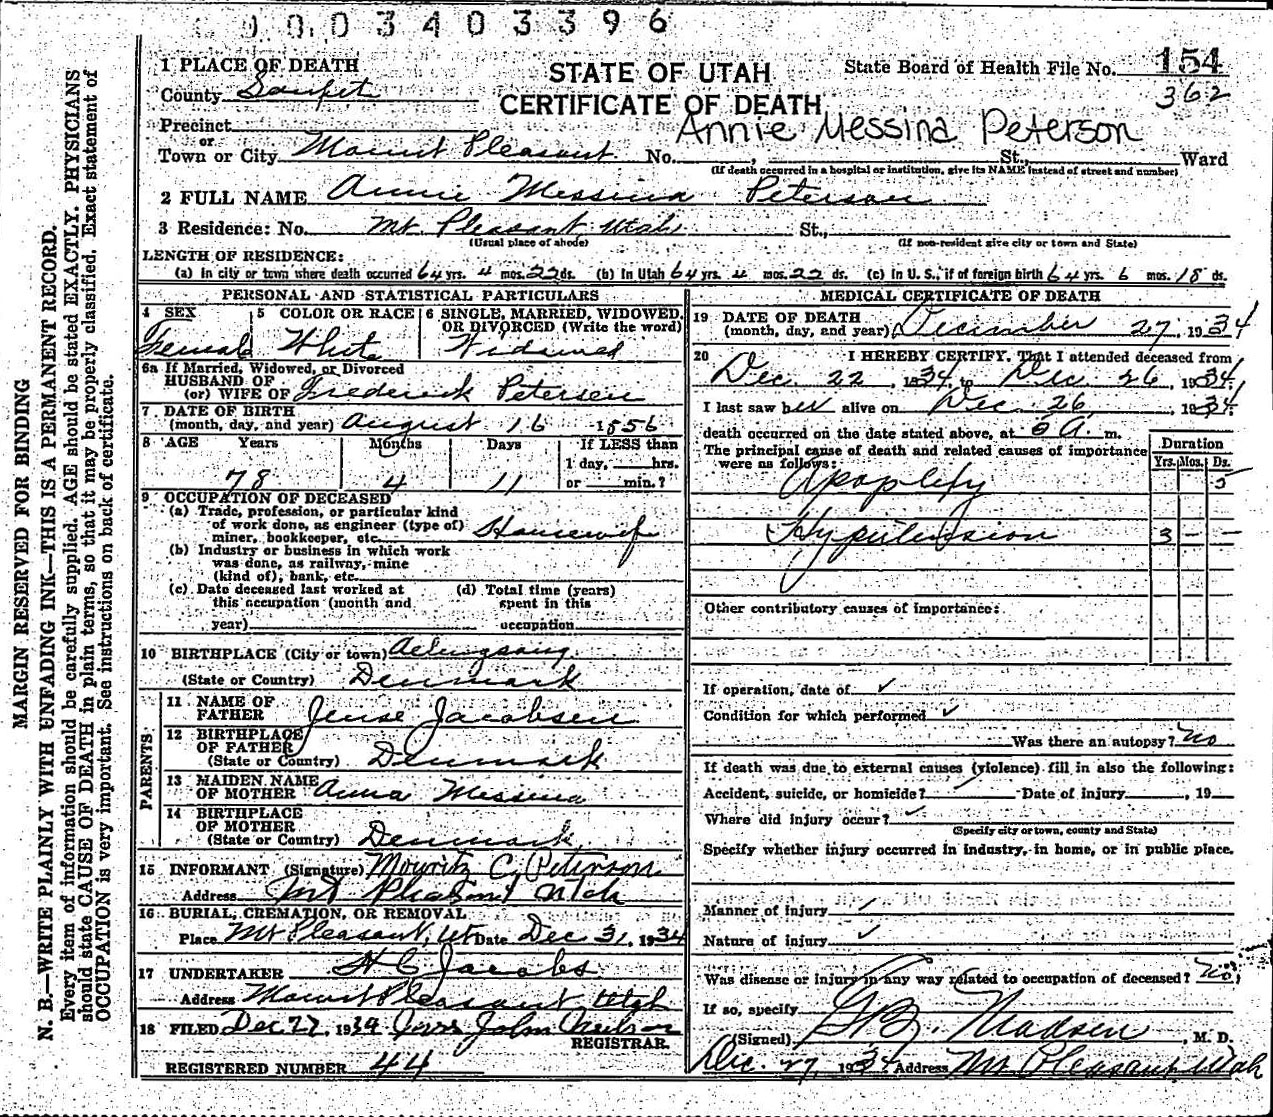 0003403396
1 PLACE OF DEATH
County Sanpete
STATE OF UTAH
CERTIFICATE OF DEATH
State Board of Health File No. 154
362
Precinct
or
Annie Messina Peterson
Town or City Mount Pleasant No. , St., Ward
(If death occurred in a hospital or institution, give its NAME instead of street and number)
2 FULL NAME Annie Messina Peterson
3 Residence: No. Mt. Pleasant, Utah St.,
(Usual place of abode) (If non-resident give city or town and State)
LENGTH OF RESIDENCE:
(a) In city or town where death occurred 64 yrs. 4 mos. 22 ds. (b) In Utah 64 yrs. 4 mos. 22 ds. (c) in U. S., if of foreign birth 64 yrs. 6 mos. 18 ds.
PERSONAL AND STATISTICAL PARTICULARS
4 SEX Female
5 COLOR OR RACE White
6 SINGLE, MARRIED, WIDOWED, OR DIVORCED (Write the word) Widowed
6a If Married, Widowed, or Divorced
HUSBAND OF
(or) WIFE OF Frederick Petersen
7 DATE OF BIRTH
(month, day, and year) August 16 1856
8 AGE Years Months Days If LESS than
1 day, hrs.
78 4 11 or min.?
9 OCCUPATION OF DECEASED
(a) Trade, profession, or particular kind
of work done, as engineer (type of)
miner, bookkeeper, etc. Housewife
(b) Industry or business in which work
was done, as railway, mine
(kind of), bank, etc.
(c) Date deceased last worked at
this occupation (month and
year)
(d) Total time (years)
spent in this
occupation
10 BIRTHPLACE (City or town)
(State or Country) Denmark
PARENTS
11 NAME OF
FATHER Jense Jacobsen
12 BIRTHPLACE
OF FATHER
(State or Country) Denmark
13 MAIDEN NAME
OF MOTHER Anna Messina
14 BIRTHPLACE
OF MOTHER
(State or Country) Denmark
15 INFORMANT (Signature) Mouritz C. Peterson
Address Mt Pleasant Utah
16 BURIAL, CREMATION, OR REMOVAL
Place Mt Pleasant, Ut Date Dec 31, 1934
17 UNDERTAKER H C Jacobs
Address Mount Pleasant Utah
18 FILED Dec 27, 1934 John Neilson
REGISTRAR.
REGISTERED NUMBER 44
MEDICAL CERTIFICATE OF DEATH
19 DATE OF DEATH
(month, day, and year) December 27, 1934
20 I HEREBY CERTIFY, That I attended deceased from
Dec. 22, 1934, to Dec. 26, 1934.
I last saw her alive on Dec. 26, 1934.
death occurred on the date stated above, at A. m.
The principal cause of death and related causes of importance
were as follows:
Duration
Yrs. Mos. Ds.
Apoplexy 5
Hypertension 3 - -
Other contributory causes of importance:
If operation, date of ✓
Condition for which performed ✓
Was there an autopsy? No
If death was due to external causes (violence) fill in also the following:
Accident, suicide, or homicide? Date of injury , 19
Where did injury occur? ✓
(Specify city or town, county and State)
Specify whether injury occurred in industry, in home, or in public place.
Manner of injury ✓
Nature of injury ✓
Was disease or injury in any way related to occupation of deceased? No
If so, specify
(Signed) Madsen, M. D.
Dec. 27, 1934. Address Mt Pleasant Utah
MARGIN RESERVED FOR BINDING
N. B.—WRITE PLAINLY WITH UNFADING INK—THIS IS A PERMANENT RECORD.
Every item of information should be carefully supplied. AGE should be stated EXACTLY. PHYSICIANS
should state CAUSE OF DEATH in plain terms, so that it may be properly classified. Exact statement of
OCCUPATION is very important. See instructions on back of certificate.